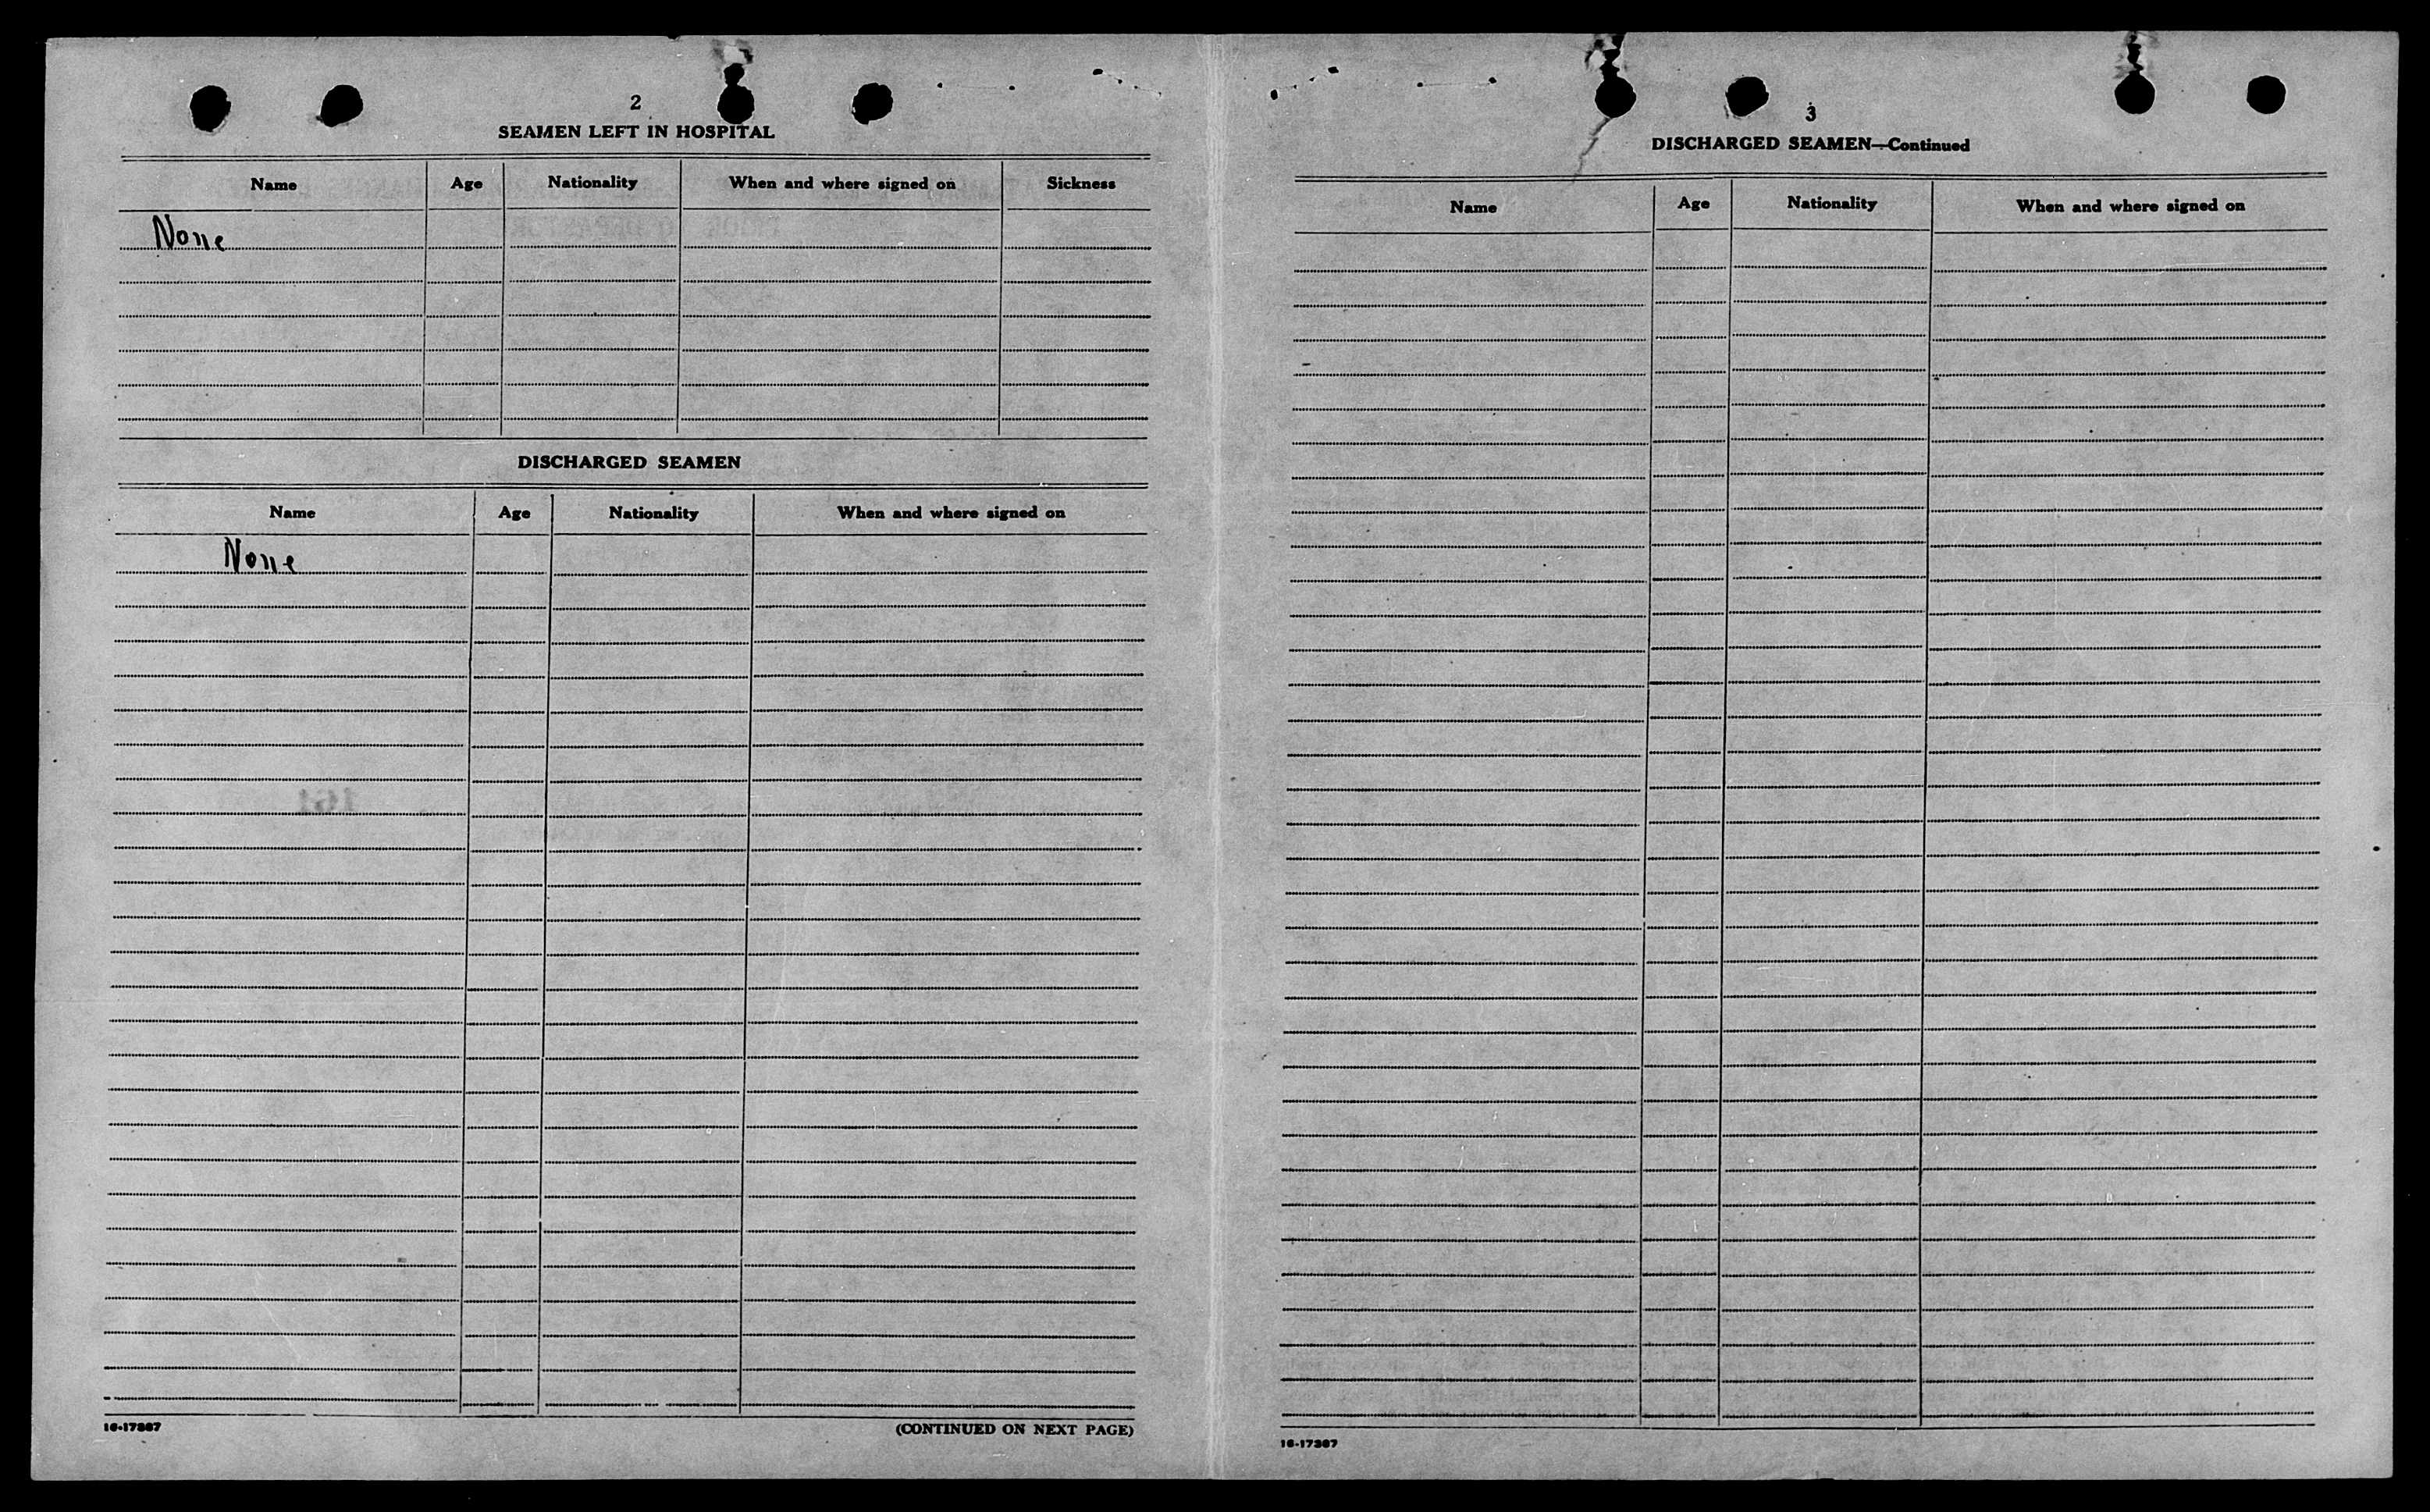 2
SEAMEN LEFT IN HOSPITAL
Name Age Nationality When and where signed on Sickness
None
DISCHARGED SEAMEN
Name Age Nationality When and where signed on
None
16-17307
(CONTINUED ON NEXT PAGE)
3
DISCHARGED SEAMEN—Continued
Name Age Nationality When and where signed on
16-17307